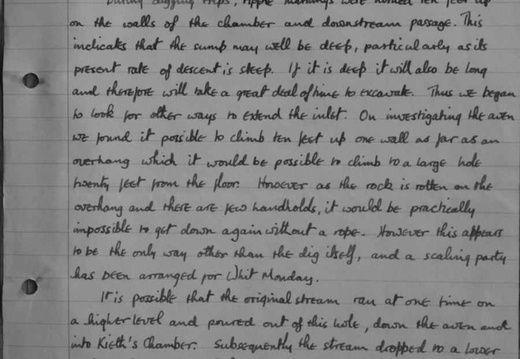 During digging trips, ripple markings were noticed ten feet up
on the walls of the chamber and downstream passage. This
indicates that the sump may well be deep, particularly as its
present rate of descent is steep. If it is deep it will also be long
and therefore will take a great deal of time to excavate. Thus we began
to look for other ways to extend the inlet. On investigating the aven
we found it possible to climb ten feet up one wall as far as an
overhang which it would be possible to climb to a large hole
twenty feet from the floor. However as the rock is rotten on the
overhang and there are few handholds, it would be practically
impossible to get down again without a rope. However this appears
to be the only way other than the dig itself, and a scaling party
has been arranged for Whit Monday.
It is possible that the original stream ran at one time on
a higher level and poured out of this hole, down the aven and
into Kieth's Chamber. Subsequently the stream dropped to a lower